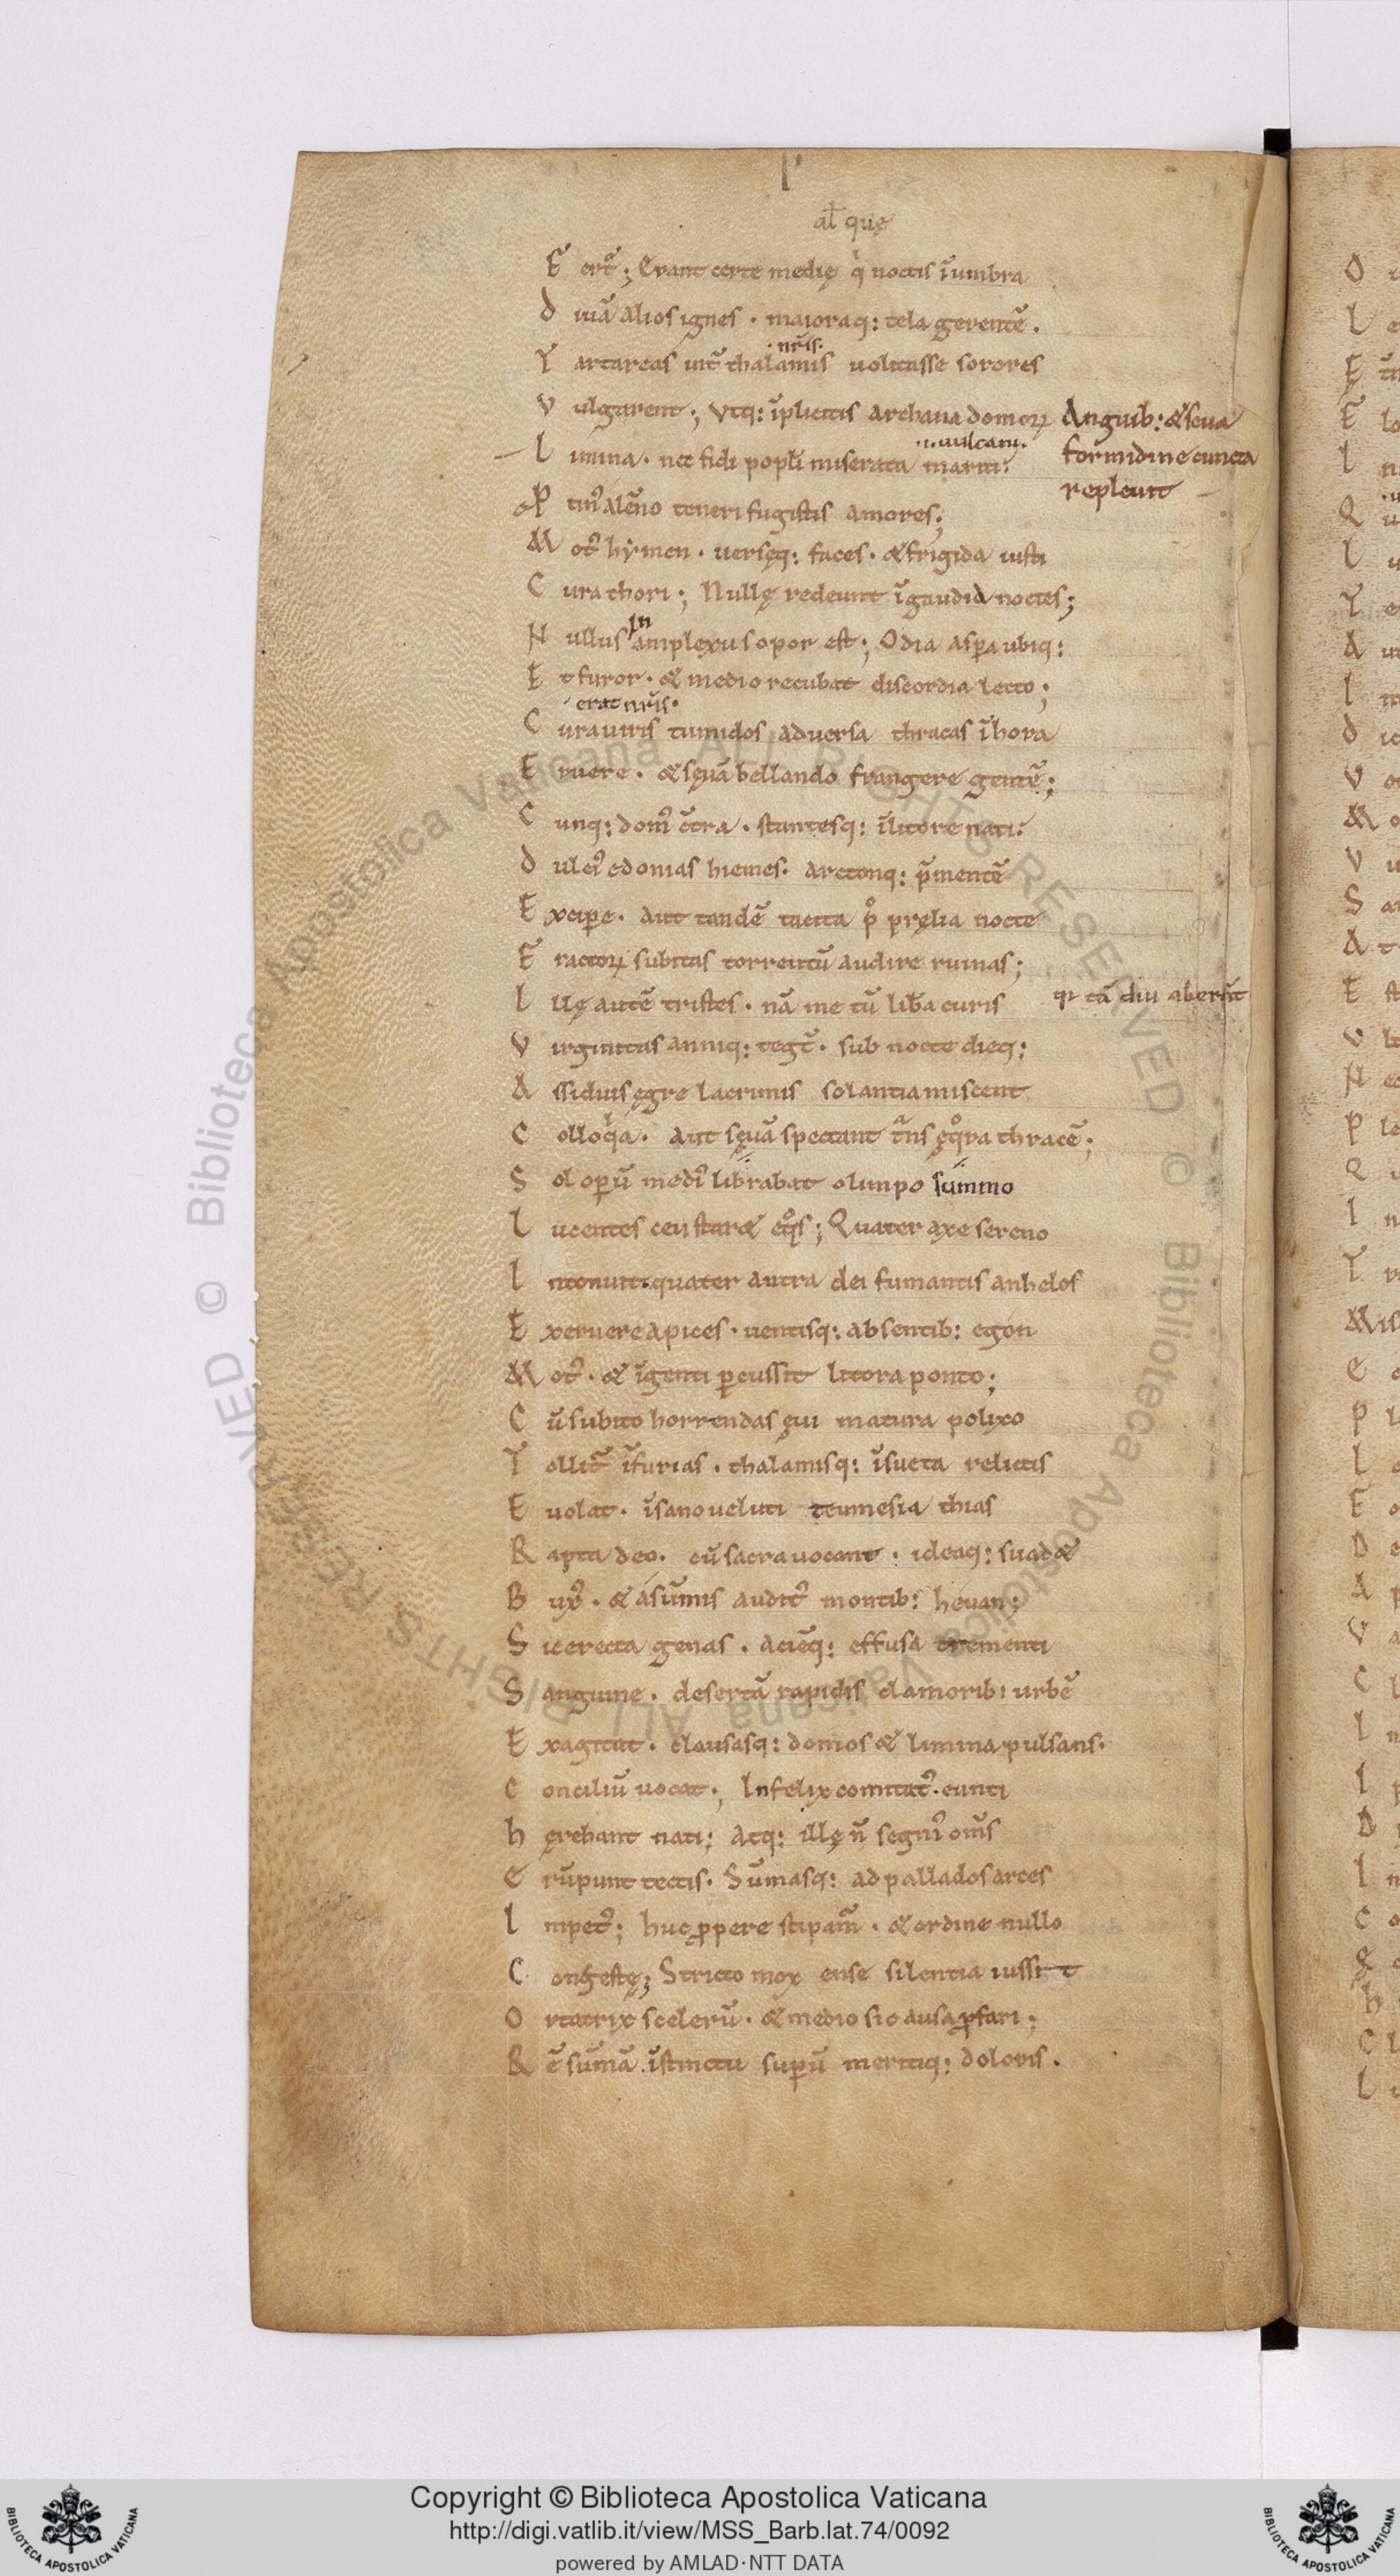 al̄ quę
Ē ert̃; Erant certe medię q̇ noctis īumbra
D iuā alios ignes . maioraq: tela gerentē .
. nr̄is.
T artareas int̃ thalamis uolitasse sorores
V ulgarent; Vtq: īplicitis archana domoꝝ Anguib: & seua
formidine cuncta
repleuit
.i. uulcani.
L imina . nec fidi popl̄i miserata mariti:
P tin᷒ a lēno teneri fugistis amores;
M ot᷒ hymen . uersęq: faces . & frigida iusti
C ura thori; Nullę redeunt īgaudia noctes;
In
N ullus amplexu sopor est; Odia aspa ubiq:
E t furor . & medio recubat discordia lecto;
erat nr̄is.
C ura uiris tumidos aduersa thracas īhora
E ruere . & sęuā bellando frangere gentē;
C unq: dom᷒ c̄tra . stantesq: ilitore nati:
D ulci᷒ edonias hiemes . arctonq: p̄mentē
E xcipe . aut tandē tacita p᷒ pręlia nocte
F ractoꝝ subitas torrentū audire ruinas;
I llę autē tristes . nā me tū libā curis qr tā diu aberāt
V irginitas anniq: tegt̃ . sub nocte dieq:
A ssiduis ęgre lacrimis solantia miscent
C olloqa . Aut sęuā spectant t̃ns ęq̊ra thracē;
S ol opū medi᷒ librabat olimpo summo
L ucentes ceu staret eq̊s; Quater axe sereno
I ntonuit. quater antra dei fumantis anhelos
E xeruere apices . uentisq: absentib: egon
M ot᷒ . & īgenti pcussit litora ponto;
C ū subito horrendas ęui matura polixo
T ollit̃ īfurias . thalamisq: īsueta relictis
E uolat . īsano ueluti teumesia thias
R apta deo . cū sacra uocant . ideaq: suadet
B ux᷒ . & asūmis audit᷒ montib: heuan;
S ic erecta genas . aciēq: effusa trementi
S anguine . desertā rapidis clamorib: urbē
E xagitat . clausasq: domos & limina pulsans.
C onciliū uocat; Infelix comitat᷒ . eunti
H ęrebant nati; Atq: illę n̄ segni᷒ om̄s
E rūpunt tectis . Sūmasq: ad pallados arces
I mpet᷒; huc ꝓpere stipam̃ . & ordine nullo
C ongestę; Stricto mox ense silentia iussit
O rtatrix scelerū . & medio sic ausa ꝓfari;
R ē sūmā īstinctu supū meritiq: doloris .
Copyright © Biblioteca Apostolica Vaticana
http://digi.vatlib.it/view/MSS_Barb.lat.74/0092
powered by AMLAD·NTT DATA